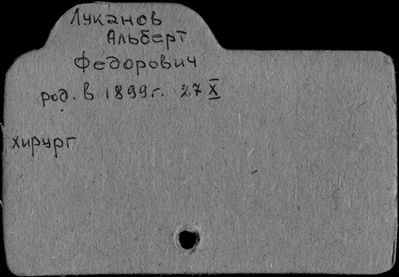 Луканов
Альберт
Федорович
род. в 1899г. 27 X
хирург